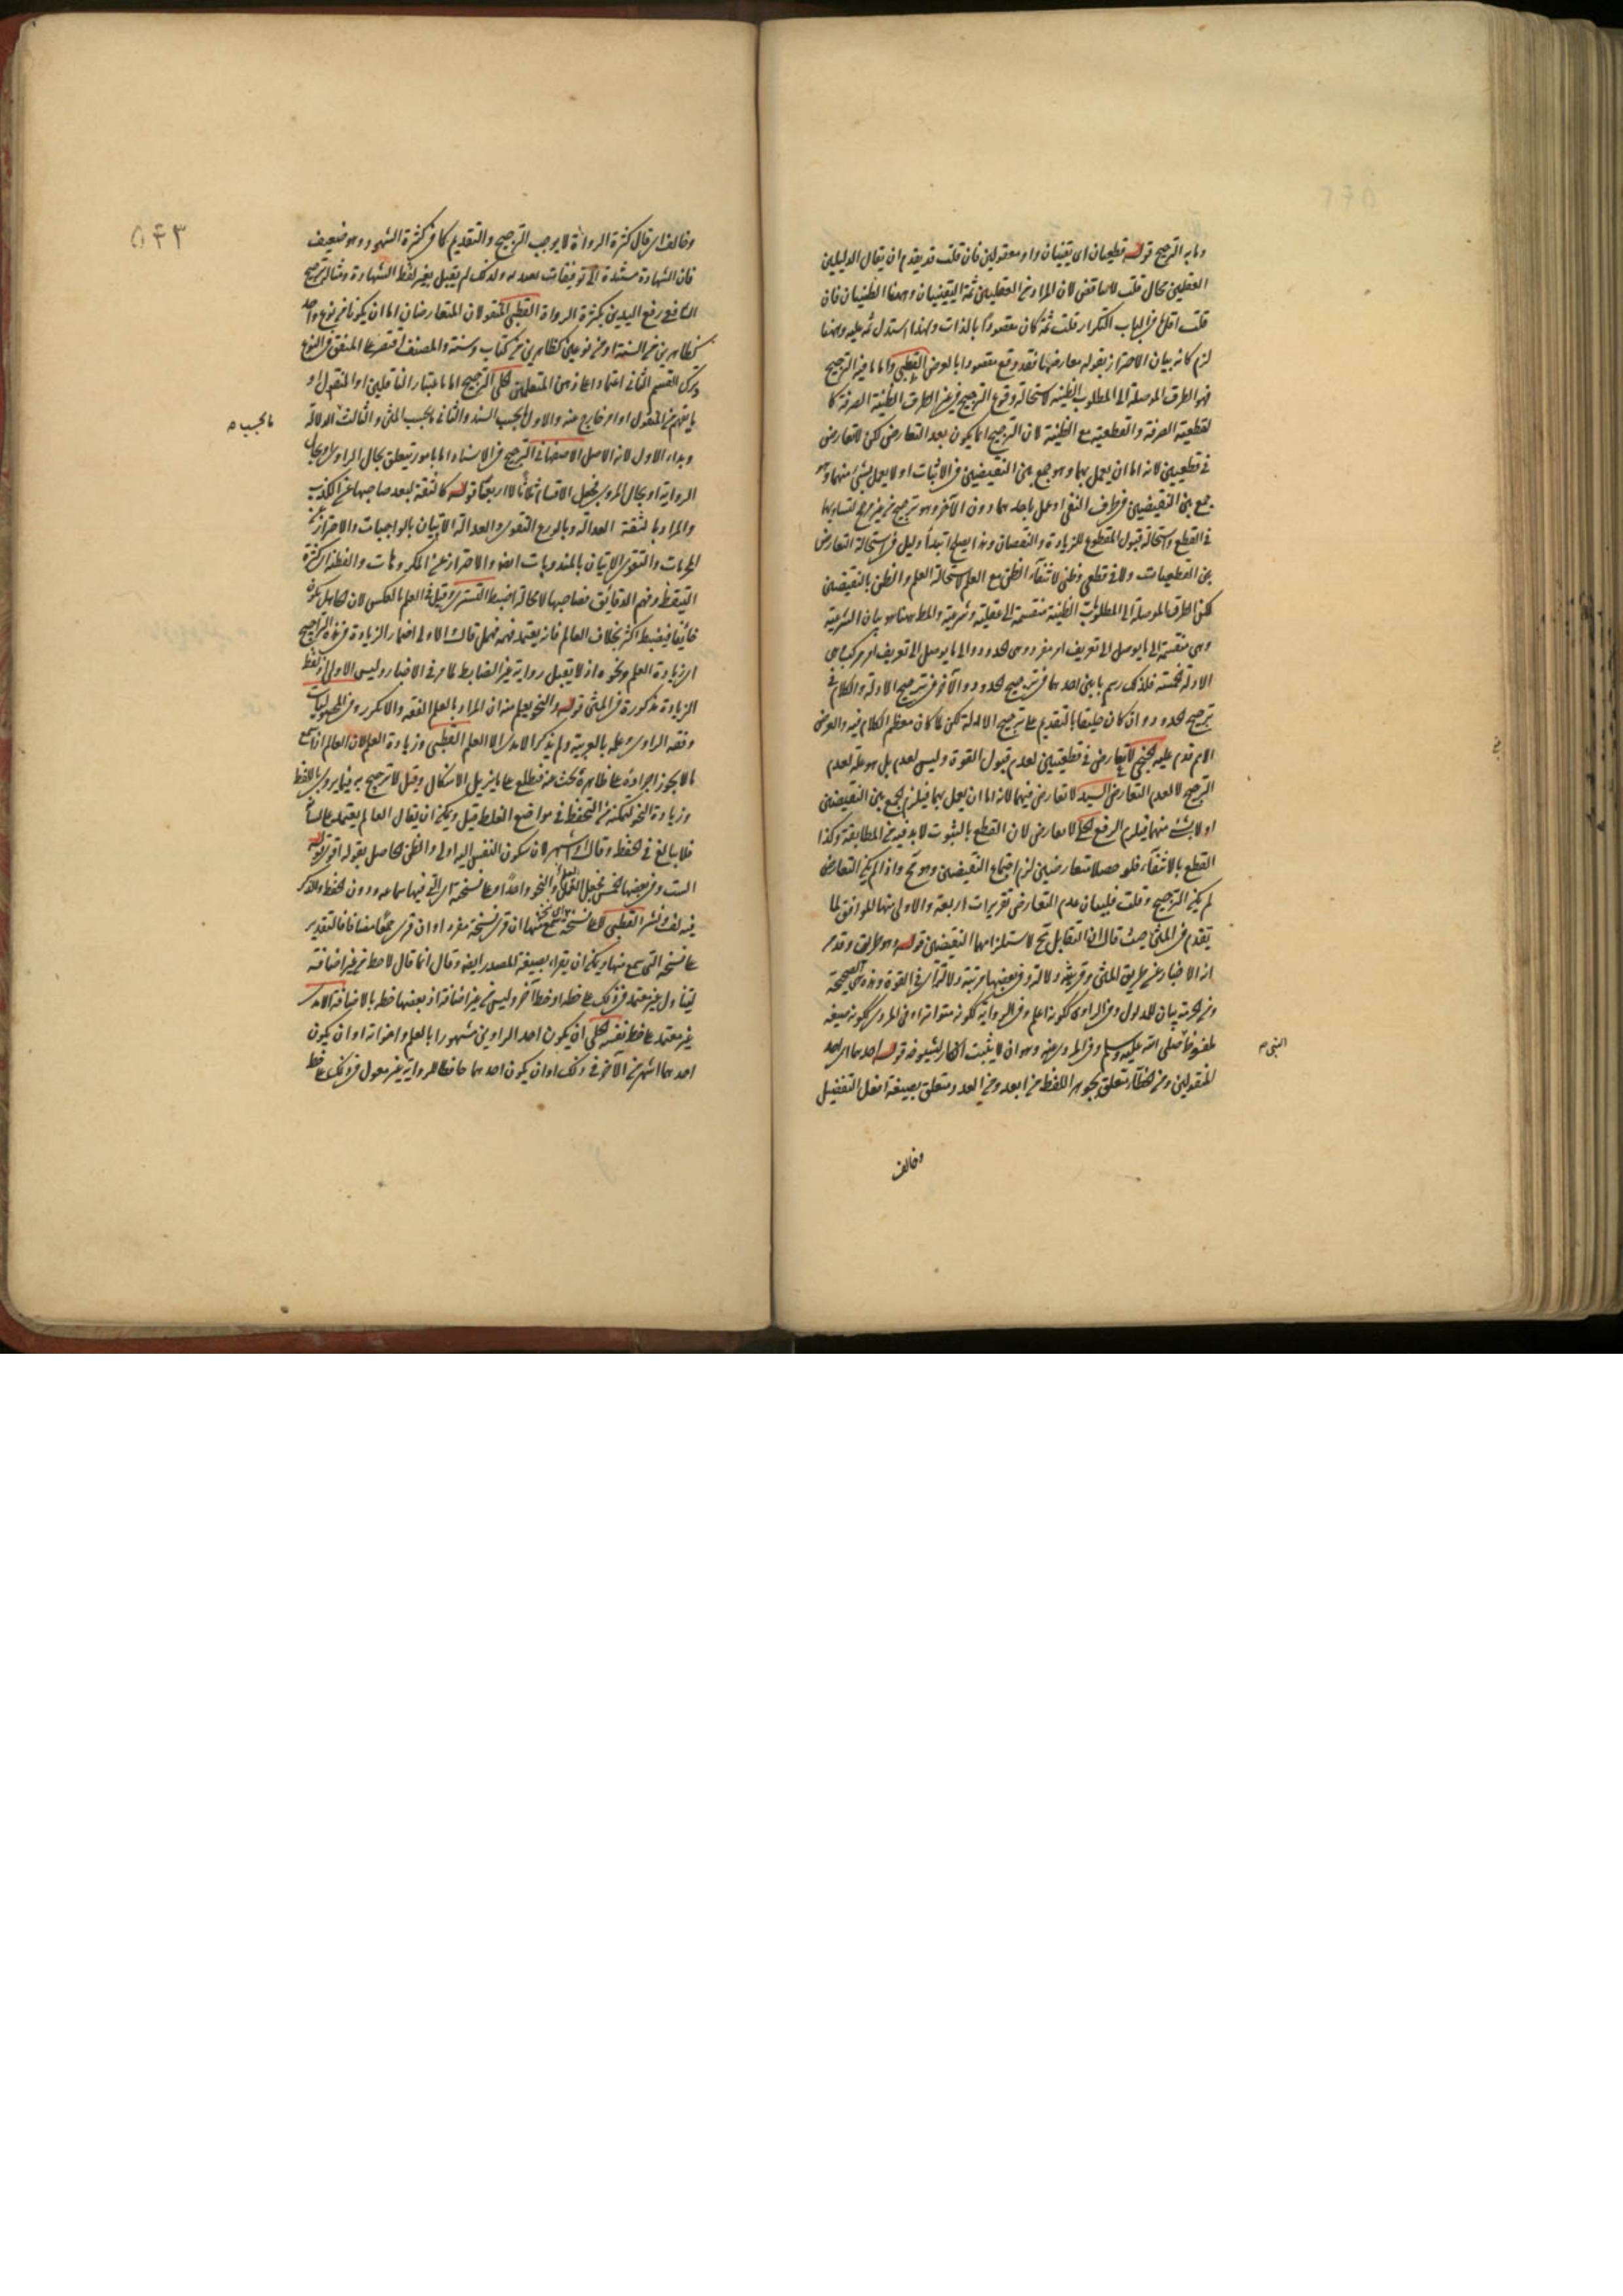 وما به الترجيح قوله قطعيان اى يقينيان او معقولين فان قلت قد تقدم ان يقال الدليلين
العقليين محال قلت لا يناقض لان المراد من العقليين ثمة اليقينيان وههنا الظنيان فان
قلت اقل ما فى الباب التكرار قلت ثمة كان مقصودا بالذات ولهذا استدل ثمه عليه وههنا
لزم كانه بيان الاحتراز بقوله معارضها فقد وقع مقصودا بالعرض القطبى واما ما فيه الترجيح
فهو الطرق الموصلة الى المطلوب الظنية لاستحالة وقوع الترجيح فى غير الطرق الظنية الصرفة كا
لقطعية الصرفة والقطعية مع الظنية لان الترجيح انما يكون بعد التعارض لكن لا تعارض
فى قطعيين لانه اما ان يعمل بهما وهو جمع بين النقيضين فى الاثبات او لا يعمل بشئ منهما وهو
جمع بين النقيضين فى طرف النفى او يعمل باحدهما دون الآخر وهو ترجيح من غير مرجح لتساويهما
فى القطع واستحالة قبول المقطوع للزيادة والنقصان وهذا يصلح ابتدأ دليل فى استحالة التعارض
بين القطعيات ولا فى قطعى وظنى لانتفاء الظن مع العلم لاستحالة العلم والظن بالنقيضين
لكن الطرق الموصلة الى المطلوبات الظنية منقسمة الى عقلية وشرعية والمط ههنا هو بيان الشرعية
وهى منقسمة الى ما يوصل الى تعريف امر مفرد وهى الحدود والى ما يوصل الى تعريف امر مركب وهى
الادلة الخمسة فلذلك رسم بابين احدهما فى ترجيح الحدود والآخر فى ترجيح الادلة والكلام فى
ترجيح الحدود وان كان خليقا بالتقديم على ترجيح الادلة لكن لما كان معظم الكلام فيه والغرض
الاهم قدم عليه الخنجى لا تعارض فى قطعيين لعدم قبول القوة وليس لعدم بل هو علة لعدم
الترجيح لا لعدم التعارض السيد لا تعارض فيهما لانه اما ان يعمل بهما فيلزم الجمع بين النقيضين
او لا بشئ منهما فيلزم الرفع الحلى لا تعارض لان القطع بالثبوت لابد فيه من المطابقة وكذا
القطع بالانتفاء فلو حصلا متعارضين لزم اجتماع النقيضين وهو مح واذا لم يكن التعارض
لم يكن الترجيح وقلت فلبيان عدم التعارض تقريرات اربعة والاولى منها الموافق لما
يتقدم فى المتن حيث قال ان التقابل مح لاستلزامهما النقيضين قوله وهو طريق وقدم
ان الاخبار عن طريق المتن وفى بعضها مرتبة دلالته اى فى القوة وهذه هى الصحيحة
ومن الحرمة بيان للمدلول وفى الراوى ككونه اعلم وفى الرواية ككونه متواترا وفى المروى ككونه صيغة
ملفوظا صلى الله عليه وسلم وفى المروى عنه وهو ان لا يثبت انكار لشيوخه قوله احدهما اى احد
المنقولين ومن الخطأ متعلق بجوهر اللفظ من ابعد ومن العدد متعلق بصيغة افعل التفضيل
النبى م
وخالف
٥٤٣
وخالف اى قال كثرة الرواة لا يوجب الترجيح والتقديم كما فى كثرة الشهود وهو ضعيف
فان الشهادة مستندة الى توقيفات تعبديه ولذلك لم يقبل بغير لفظ الشهادة ومثاله ترجيح
الشافعى رفع اليدين بكثرة الرواة القطبى المنقولان المتعارضان اما ان يكونا من نوع واحد
كظاهرين من السنة او من نوعين كظاهرين من كتاب وسنة والمصنف اقتصر على المتفق فى النوع
وترك القسم الثانى اعتمادا على ذهن المتعلمين الحلى الترجيح اما باعتبار الناقلين او المنقول او
ما يفهم من المنقول او امر خارج عنه والاول ما بحسب السند والثانى ما بحسب المتن والثالث الدلالة
ما بحسب م
وبداء الاول لانه الاصل الاصفهانى الترجيح فى الاسناد اما بامور يتعلق بحال الراوى او بحال
الرواية او بحال المروى فجعل الاقسام ثلاثا لا اربعا قوله كالثقة لبعد صاحبها عن الكذب
والمراد بالثقة العدالة وبالورع التقوى والعدالة الاتيان بالواجبات والاحتراز عن
المحرمات والتقوى الاتيان بالمندوبات ايضا والاحتراز عن المكروهات والفطنة اى كثرة
التيقظ وفهم الدقائق فصاحبها لا محالة اضبط التسترى وقيل فى العلم بالعكس لان الجاهل يكون
خائفا فيضبط اكثر بخلاف العالم فانه يعتمد فهمه
اى زيادة العلم ونحوه اذ لا يقبل رواية غير الضابط كما مر فى الاخبار وليس الاولى لفظ
الزيادة مذكورة فى المتن قوله والنحو يعلم منه ان المراد بالعلم الفقه والا لتكرر وفى المحصول
وفقه الراوى وعلمه بالعربية ولم يذكر الآمدى الا العلم القطبى وزيادة العلم لان العالم اذا سمع
ما لا يجوز اجراؤه على ظاهره بحث عنه فيطلع على ما يزيل الاشكال وقيل لا ترجيح به فيما يروى باللفظ
وزيادة النحو لتمكنه من التحفظ فى مواضع الغلط قيل ويمكن ان يقال العالم يعتمد على لسانه
فلا يبالغ فى الحفظ وقال الاشهر لان سكون النفس اليه اولى والظن الحاصل بقوله اقوى قوله
الست وفى بعضها الخمس فجعل العلم والنحو واحدا وعلى نسخته اى التى فيها سماعه دون الحفظ والذكر
فيه لف ونشر القطبى
على نسخه التى سمع منها ويمكن ان يقراء بصيغة المصدر ايضا وقال انما قال لا خط من غير اضافة
ليتناول غير معتمد فى ذلك على خطه او خط آخر وليس من غير اضافة اذ بعضها خطه بالاضافة الآمدى
غير معتمد على خط نفسه الحلى ان يكون احد الراويين مشهورا بالعلم واخواته او ان يكون
احدهما اشهر من الآخر فى ذلك او ان يكون احدهما حافظا للرواية غير معول فى ذلك على خط